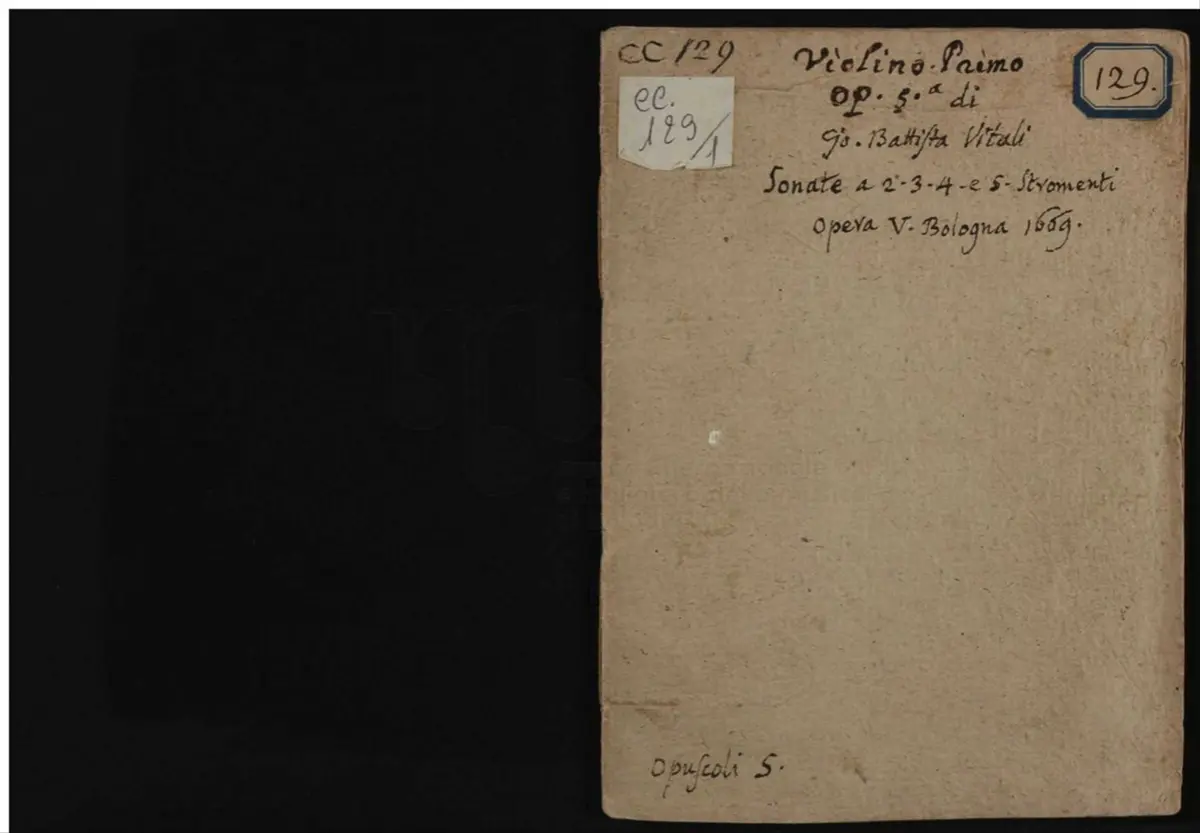 CC 129
Violino Primo
129.
OP. 5.ª di
CC.
129/1
Gio. Battista Vitali
Sonate a 2-3-4-e 5- Stromenti
Opera V. Bologna 1669.
Opuscoli 5.